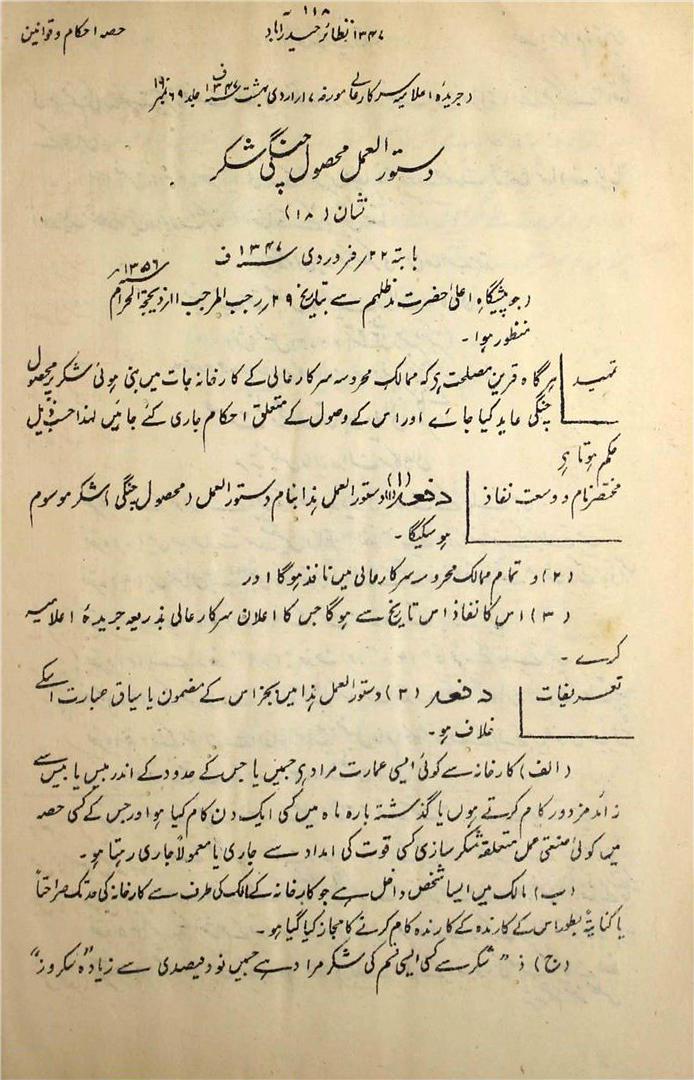 ۱۱۸
حصہ احکام و قوانین ۱۳۴۷ نظائر حیدرآباد
(جریدۂ اعلامیہ سرکار عالی مورخہ ۱۷ اردی بہشت ۱۳۴۷ ف جلد ۶۹ نمبر
دستور العمل محصول چنگی شکر
نشان (۱۸)
بابتہ ۲۲/ فروردی ۱۳۴۷ ف
(جو پیشگاہ اعلیٰ حضرت مدظلہم سے بتاریخ ۲۹/ رجب المرجب ۱۳۵۶ھ
منظور ہوا۔
تمہید ہرگاہ قرین مصلحت ہے کہ ممالک محروسہ سرکار عالی کے کارخانہ جات میں بنی ہوئی شکر پر محصول
چنگی عاید کیا جائے اور اس کے وصول کے متعلق احکام جاری کئے جائیں لہذا حسب ذیل
حکم ہوتا ہے
مختصر نام و وسعت نفاذ دفعہ (۱) (۱) دستور العمل ہذا بنام دستور العمل (محصول چنگی) شکر موسوم
ہو سکیگا۔
(۲) و تمام ممالک محروسہ سرکار عالی میں نافذ ہوگا اور
(۳) اس کا نفاذ اس تاریخ سے ہوگا جس کا اعلان سرکار عالی بذریعہ جریدۂ اعلامیہ
کرے۔
تعریفات دفعہ (۲) دستور العمل ہذا میں بجز اس کے مضمون یا سیاق عبارت اسکے
خلاف ہو۔
(الف) کارخانہ سے کوئی ایسی عمارت مراد ہے جسمیں یا جس کے حدود کے اندر بیس یا بیس سے
زائد مزدور کام کرتے ہوں یا گذشتہ بارہ ماہ میں کسی ایک دن کام کیا ہو اور جس کے کسی حصہ
میں کوئی صنعتی عمل متعلقہ شکر سازی کسی قوت کی امداد سے جاری یا معمولاً جاری رہتا ہو۔
(ب) مالک میں ایسا شخص داخل ہے جو کارخانہ کے مالک کی طرف سے کارخانہ کی حد تک صراحتاً
یا کنایۃً بطور اس کے کارندہ کے کارندہ کام کرنے کا مجاز کیا گیا ہو۔
(ج) "شکر سے کسی ایسی قسم کی شکر مراد ہے جسمیں نود فیصدی سے زیادہ "سکروز"